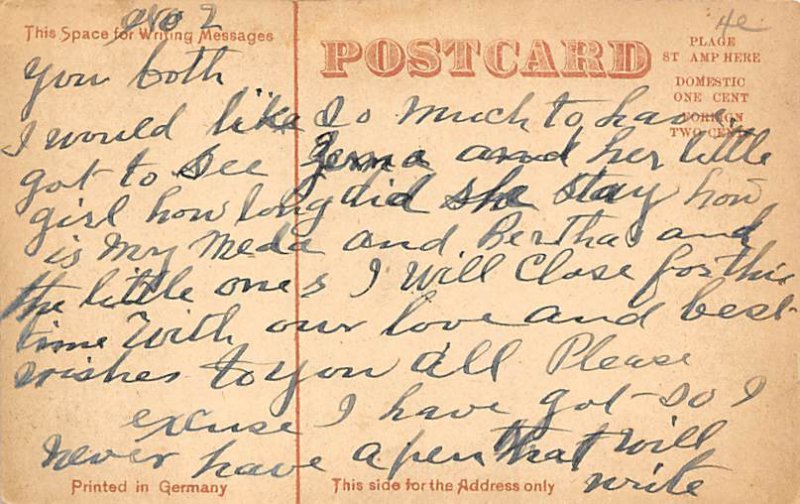 No 2
This Space for Writing Messages
4c
POSTCARD
PLACE
STAMP HERE
DOMESTIC
ONE CENT
FOREIGN
TWO CENTS
you both
I would like so much to have
got to see Zerma and her little
girl how long did she stay how
is my Meda and Bertha and
the little ones I will close for this
time with our love and best
wishes to you all Please
excuse I have got so I
never have a pen that will
write
Printed in Germany
This side for the Address only